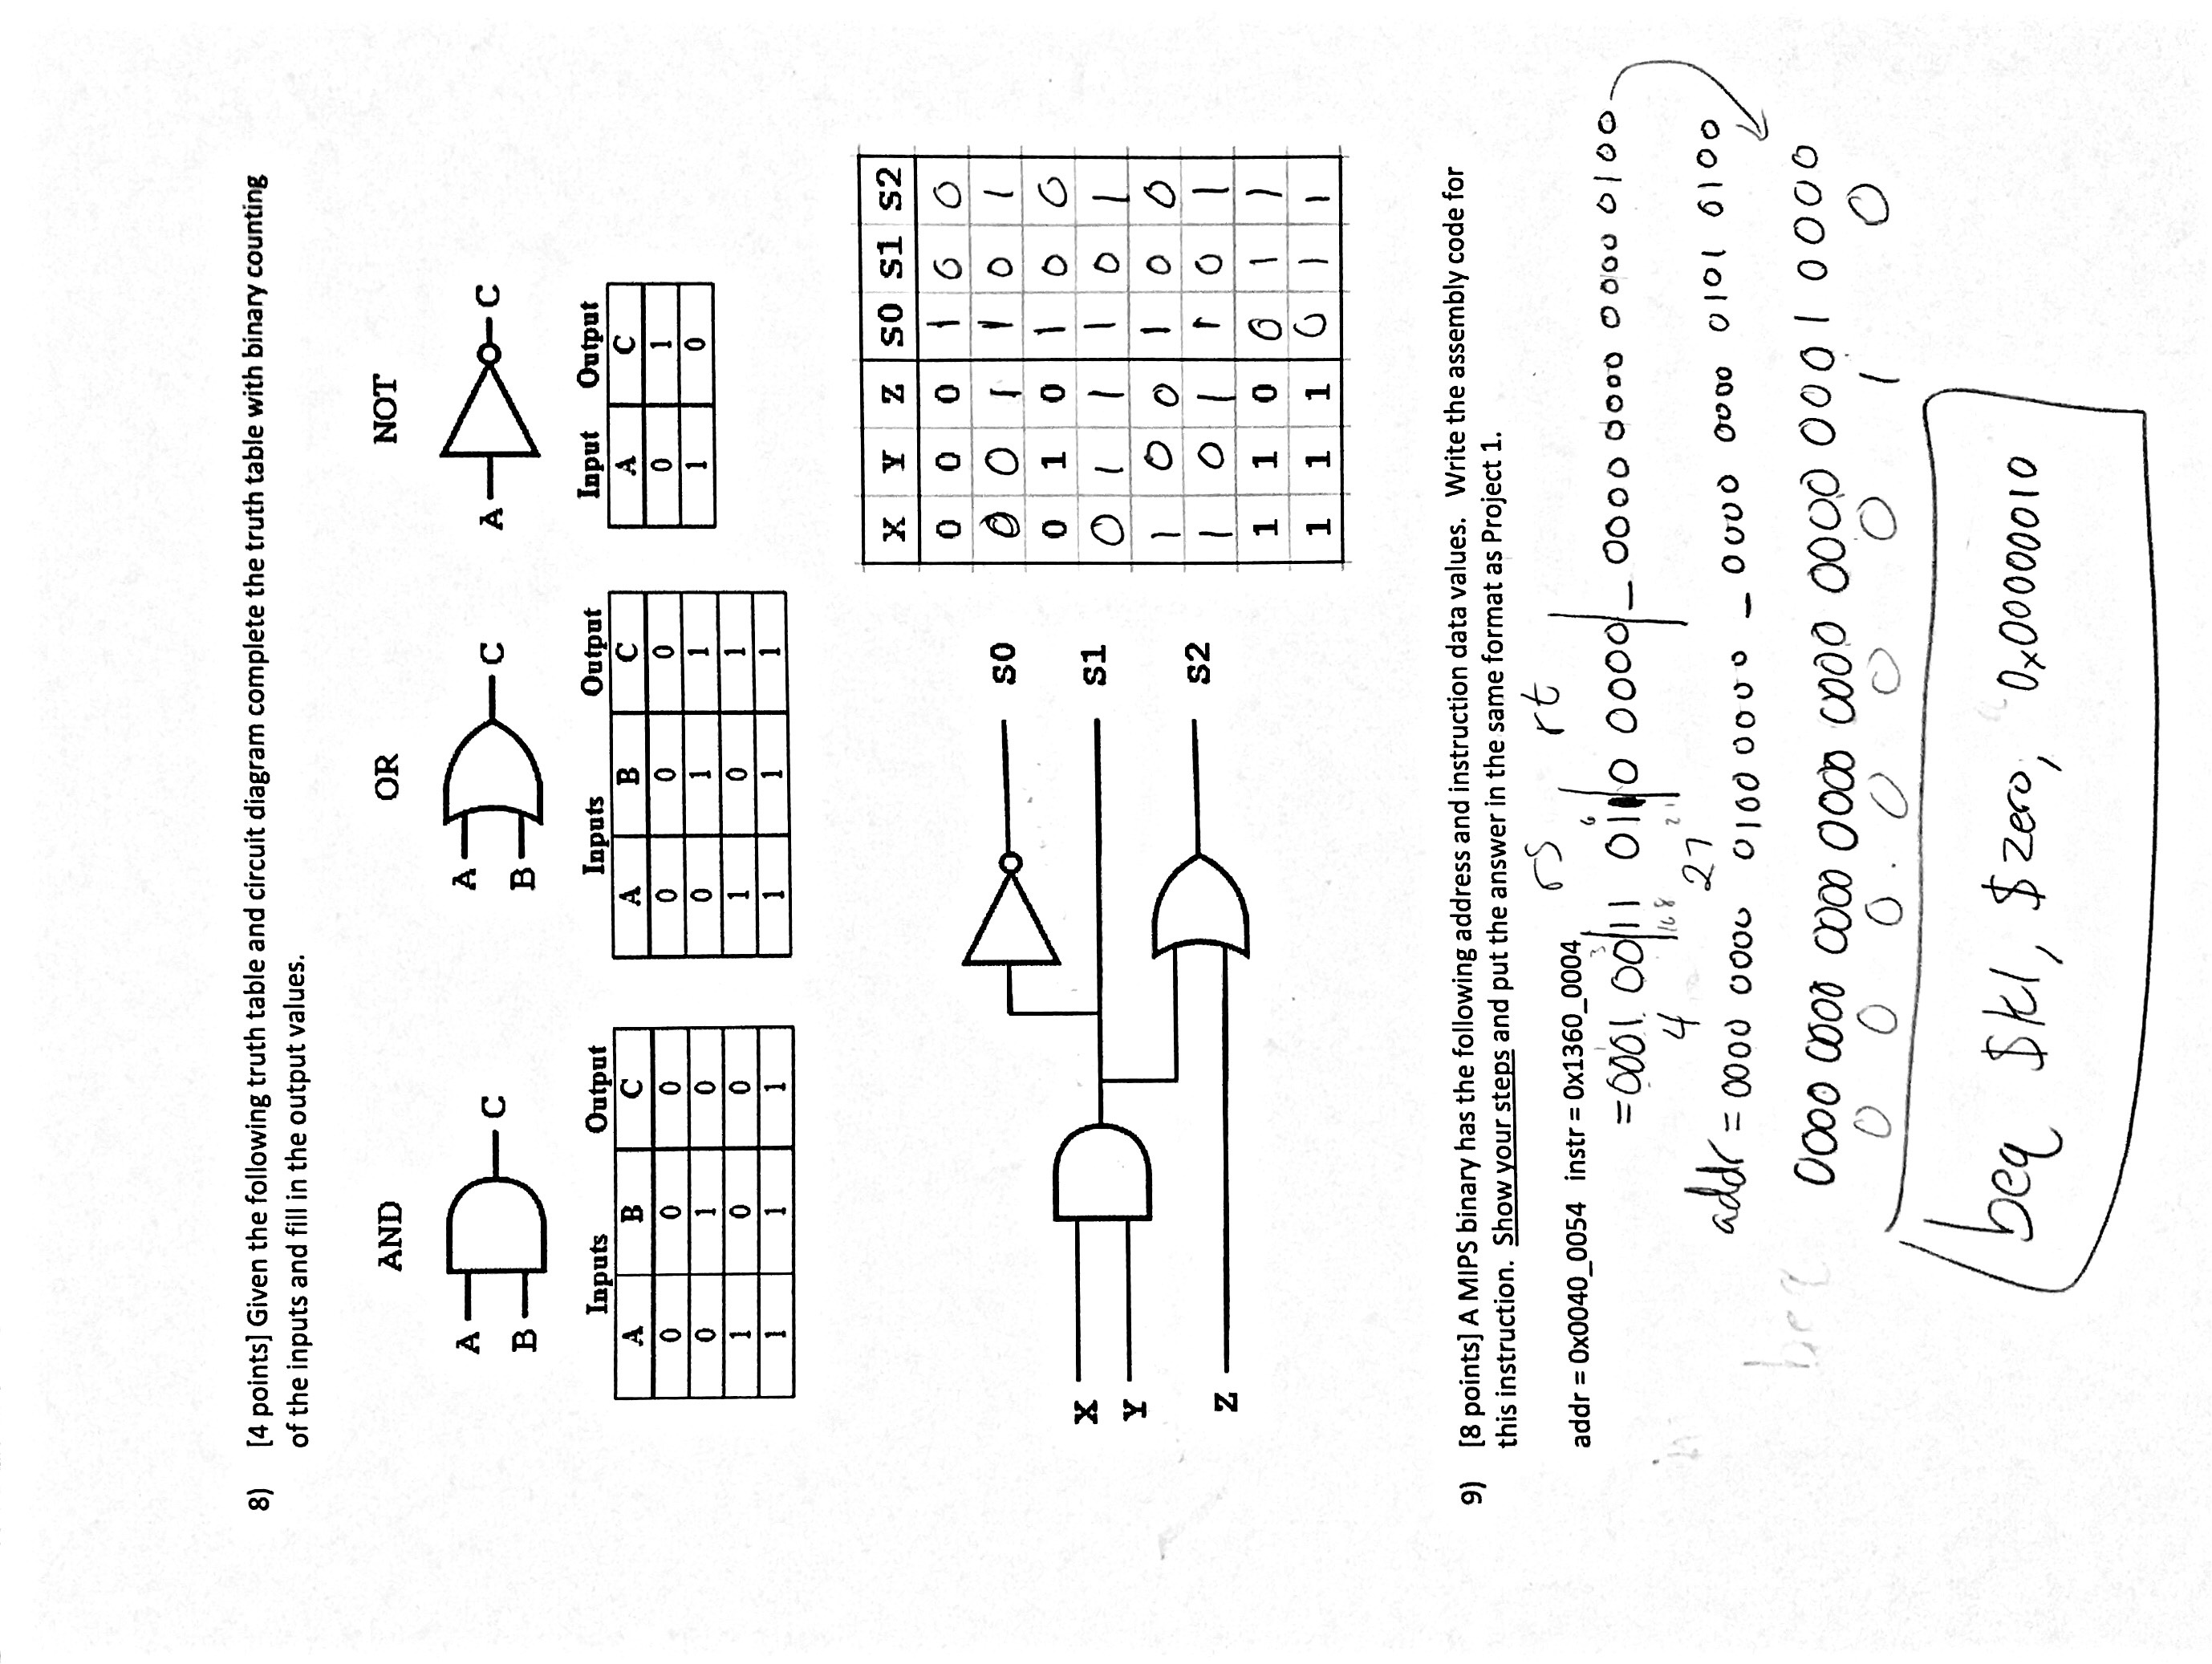 8) [4 points] Given the following truth table and circuit diagram complete the truth table with binary counting
of the inputs and fill in the output values.
AND OR NOT
A B C A B C A C
Inputs Output Inputs Output Input Output
A B C A B C A C
0 0 0 0 0 0 0 1
0 1 0 0 1 1 1 0
1 0 0 1 0 1
1 1 1 1 1 1
X Y Z S0 S1 S2
0 0 0 1 0 0
0 0 1 1 0 1
0 1 0 1 0 0
0 1 1 1 0 1
1 0 0 1 0 0
1 0 1 1 0 1
1 1 0 0 1 1
1 1 1 0 1 1
X
Y
Z
S0
S1
S2
9) [8 points] A MIPS binary has the following address and instruction data values. Write the assembly code for
this instruction. Show your steps and put the answer in the same format as Project 1.
rs rt
addr = 0x0040_0054 instr = 0x1360_0004
3 6
=0001 0011 0110 0000_0000 0000 0000 0100
4 16 8 27 2 1
addr = 0000 0000 0100 0000 _ 0000 0000 0101 0100
beq
0000 0000 0000 0000 0000 0000 0001 0000
0 0 0 0 0 0 1 0
beq $k1, $zero, 0x00000010